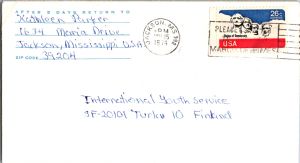 AFTER 5 DAYS RETURN TO
Kathleen Parker
1674 Maria Drive
Jackson, Mississippi U.S.A
ZIP CODE 39204
JACKSON, MS
PM
1974
26c
USA
International Youth Service
SF-20101 Turku 10 Finland